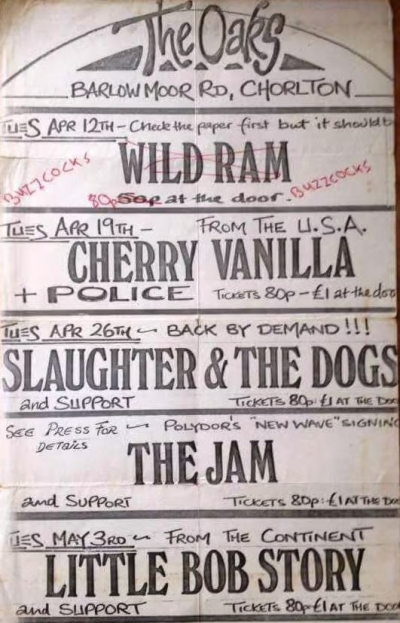 The Oaks
BARLOW MOOR RD, CHORLTON
TUES APR 12TH - Check the paper first but it should b
WILD RAM
BUZZCOCKS
80p 50p at the door.
BUZZCOCKS
TUES APR 19TH - FROM THE U.S.A.
CHERRY VANILLA
+ POLICE TICKETS 80p - £1 at the doo
TUES APR 26TH - BACK BY DEMAND!!!
SLAUGHTER & THE DOGS
and SUPPORT TICKETS 80p: £1 AT THE DOO
SEE PRESS FOR DETAILS - POLYDOR'S "NEW WAVE" SIGNING
THE JAM
and SUPPORT TICKETS 80p: £1 AT THE DOO
UES MAY 3RD - FROM THE CONTINENT
LITTLE BOB STORY
and SUPPORT TICKETS 80p £1 AT THE DOO